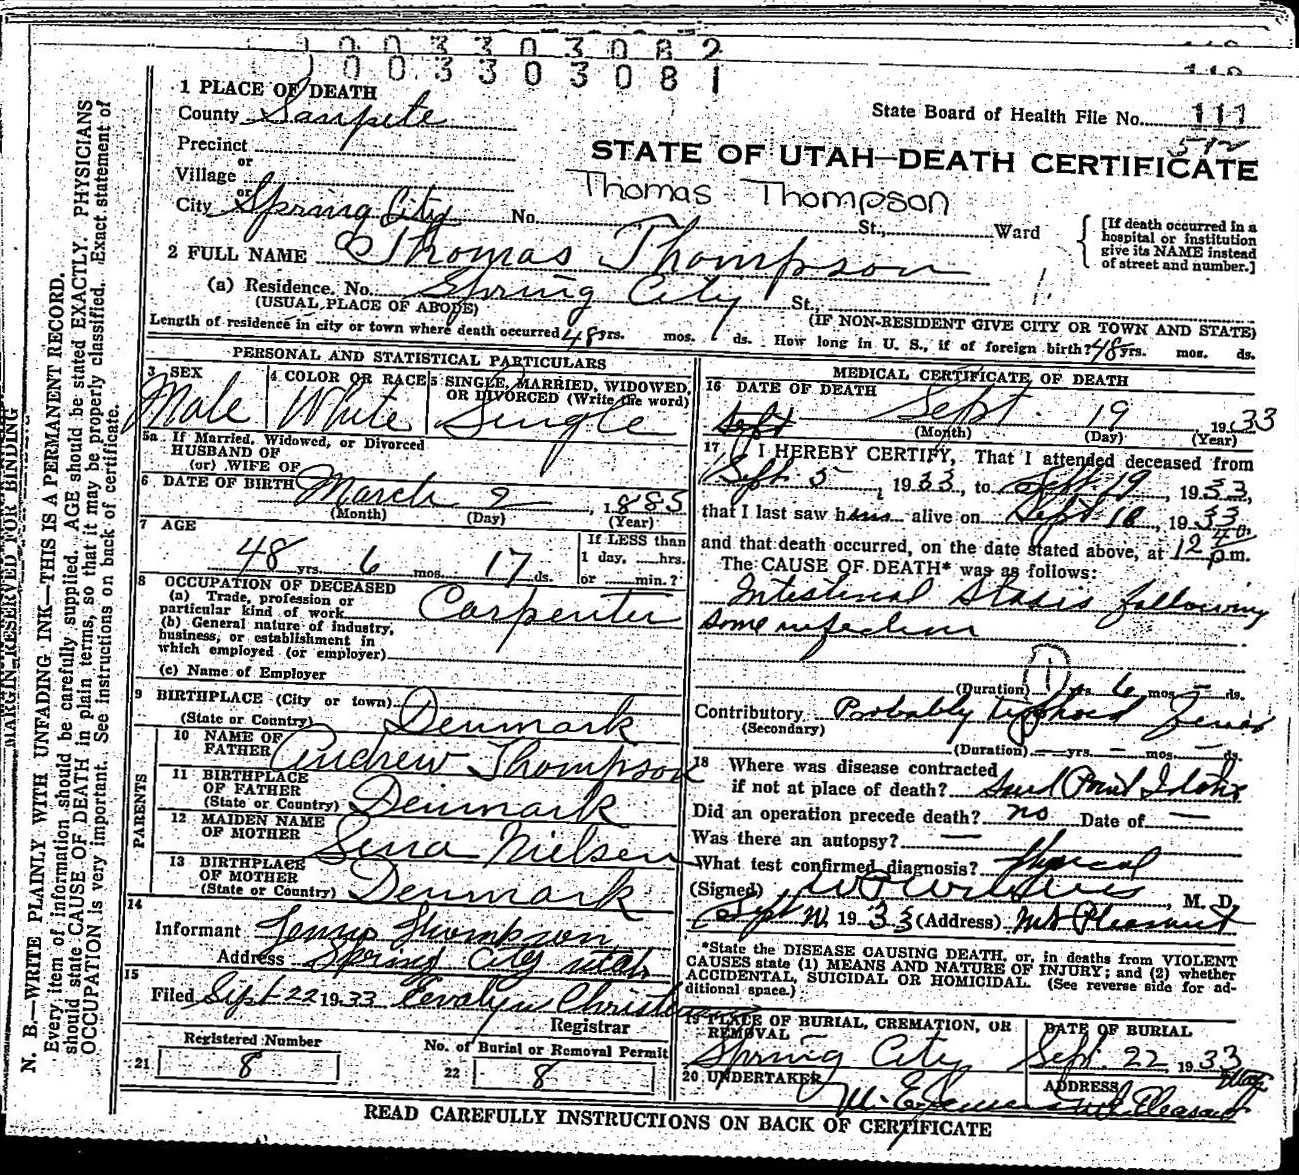 0 0 0 3 3 0 3 0 8 2
0 0 0 3 3 0 3 0 8 1
1 PLACE OF DEATH
County Sanpete
State Board of Health File No. 111
512
Precinct
or
Village
or
City Spring City No. St., Ward
STATE OF UTAH—DEATH CERTIFICATE
Thomas Thompson
[If death occurred in a hospital or institution give its NAME instead of street and number.]
2 FULL NAME Thomas Thompson
(a) Residence. No. Spring City St.,
(USUAL PLACE OF ABODE) (IF NON-RESIDENT GIVE CITY OR TOWN AND STATE)
Length of residence in city or town where death occurred 48 yrs. mos. ds. How long in U. S., if of foreign birth? 48 yrs. mos. ds.
PERSONAL AND STATISTICAL PARTICULARS
3 SEX
Male
4 COLOR OR RACE
White
5 SINGLE, MARRIED, WIDOWED, OR DIVORCED (Write the word)
Single
5a If Married, Widowed, or Divorced
HUSBAND OF
(or) WIFE OF
6 DATE OF BIRTH March 2, 1885
(Month) (Day) (Year)
7 AGE
48 yrs. 6 mos. 17 ds.
If LESS than
1 day, hrs.
or min.?
8 OCCUPATION OF DECEASED
(a) Trade, profession or
particular kind of work Carpenter
(b) General nature of industry,
business, or establishment in
which employed (or employer)
(c) Name of Employer
9 BIRTHPLACE (City or town)
(State or Country) Denmark
PARENTS
10 NAME OF
FATHER Andrew Thompson
11 BIRTHPLACE
OF FATHER
(State or Country) Denmark
12 MAIDEN NAME
OF MOTHER Sena Nielsen
13 BIRTHPLACE
OF MOTHER
(State or Country) Denmark
14
Informant Thompson
Address Spring City Utah
15
Filed Sept 22 1933 Evalyn
Registrar
Registered Number
21 8
No. of Burial or Removal Permit
22 8
MEDICAL CERTIFICATE OF DEATH
16 DATE OF DEATH
Sept Sept. 19 1933
(Month) (Day) (Year)
17 I HEREBY CERTIFY, That I attended deceased from
Sept 5, 1933, to Sept 19, 1933,
that I last saw him alive on Sept 18, 1933,
and that death occurred, on the date stated above, at 12 40 p.m.
The CAUSE OF DEATH* was as follows:
Intestinal Stasis following
some infection
(Duration) 1 yrs. 6 mos. — ds.
Contributory Probably typhoid fever
(Secondary)
(Duration) — yrs. — mos. — ds.
18 Where was disease contracted
if not at place of death? Sand Point Idaho
Did an operation precede death? no Date of —
Was there an autopsy? —
What test confirmed diagnosis?
(Signed) , M. D.
Sept 1933 (Address) Mt Pleasant
*State the DISEASE CAUSING DEATH, or, in deaths from VIOLENT
CAUSES state (1) MEANS AND NATURE OF INJURY; and (2) whether
ACCIDENTAL, SUICIDAL OR HOMICIDAL. (See reverse side for ad-
ditional space.)
19 PLACE OF BURIAL, CREMATION, OR
REMOVAL
Spring City
DATE OF BURIAL
Sept. 22, 1933
20 UNDERTAKER
ADDRESS
Mt. Pleasant Utah
READ CAREFULLY INSTRUCTIONS ON BACK OF CERTIFICATE
MARGIN RESERVED FOR BINDING
N. B.—WRITE PLAINLY WITH UNFADING INK—THIS IS A PERMANENT RECORD.
Every item of information should be carefully supplied. AGE should be stated EXACTLY. PHYSICIANS
should state CAUSE OF DEATH in plain terms, so that it may be properly classified. Exact statement of
OCCUPATION is very important. See instructions on back of certificate.